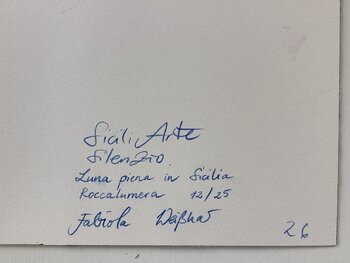 Sicili Arte
Silenzio
Luna piena in Sicilia
Roccalumera 12/25
Fabiola
26